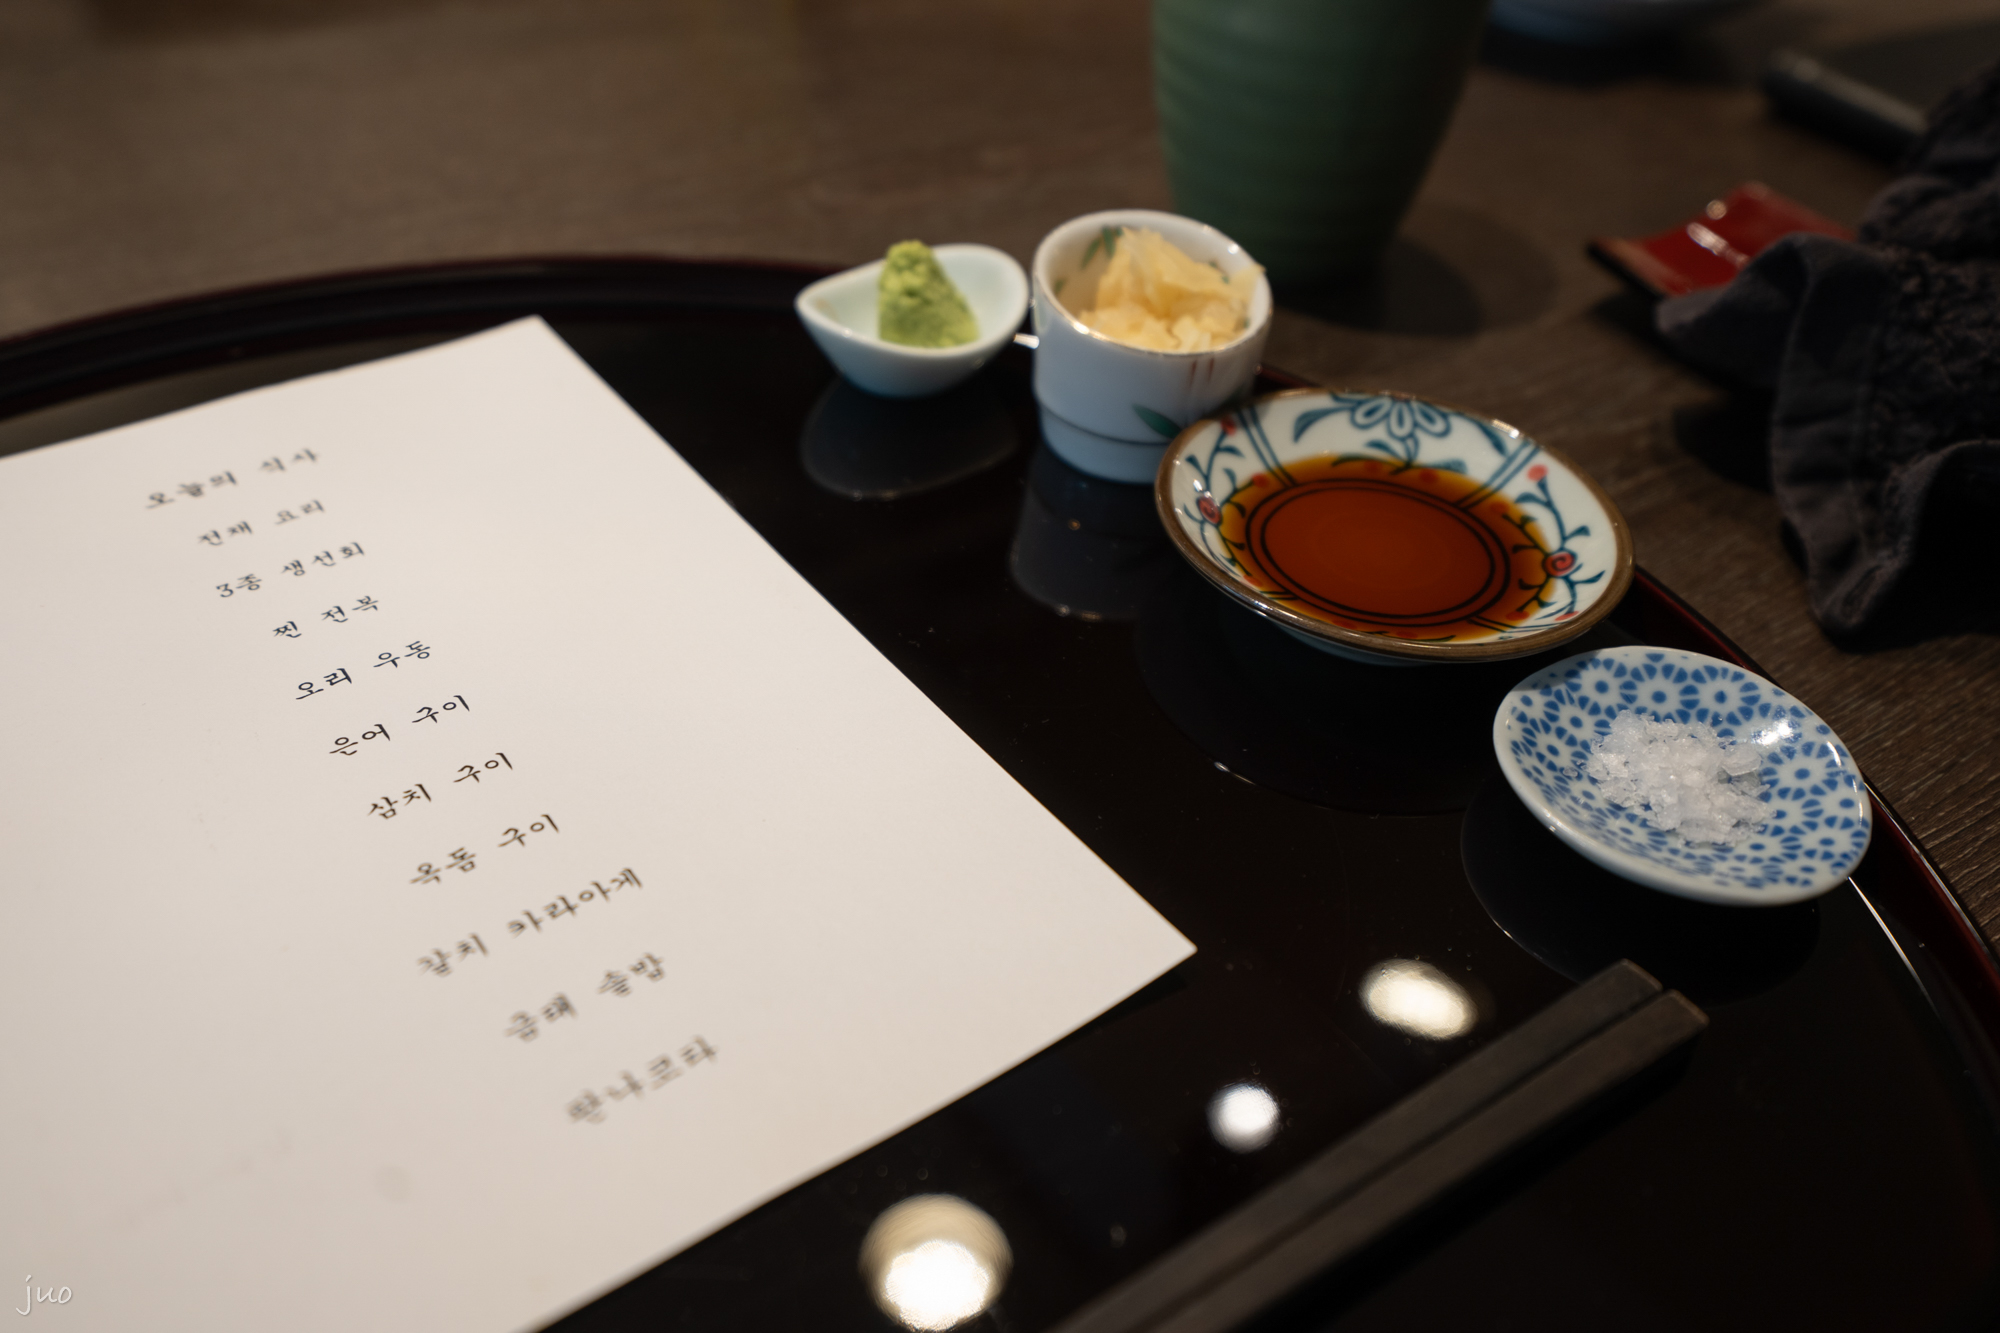 오늘의 식사
전채 요리
3종 생선회
찐 전복
오리 우동
은어 구이
삼치 구이
옥돔 구이
갈치 카라아게
금태 솥밥
판나코타
juo